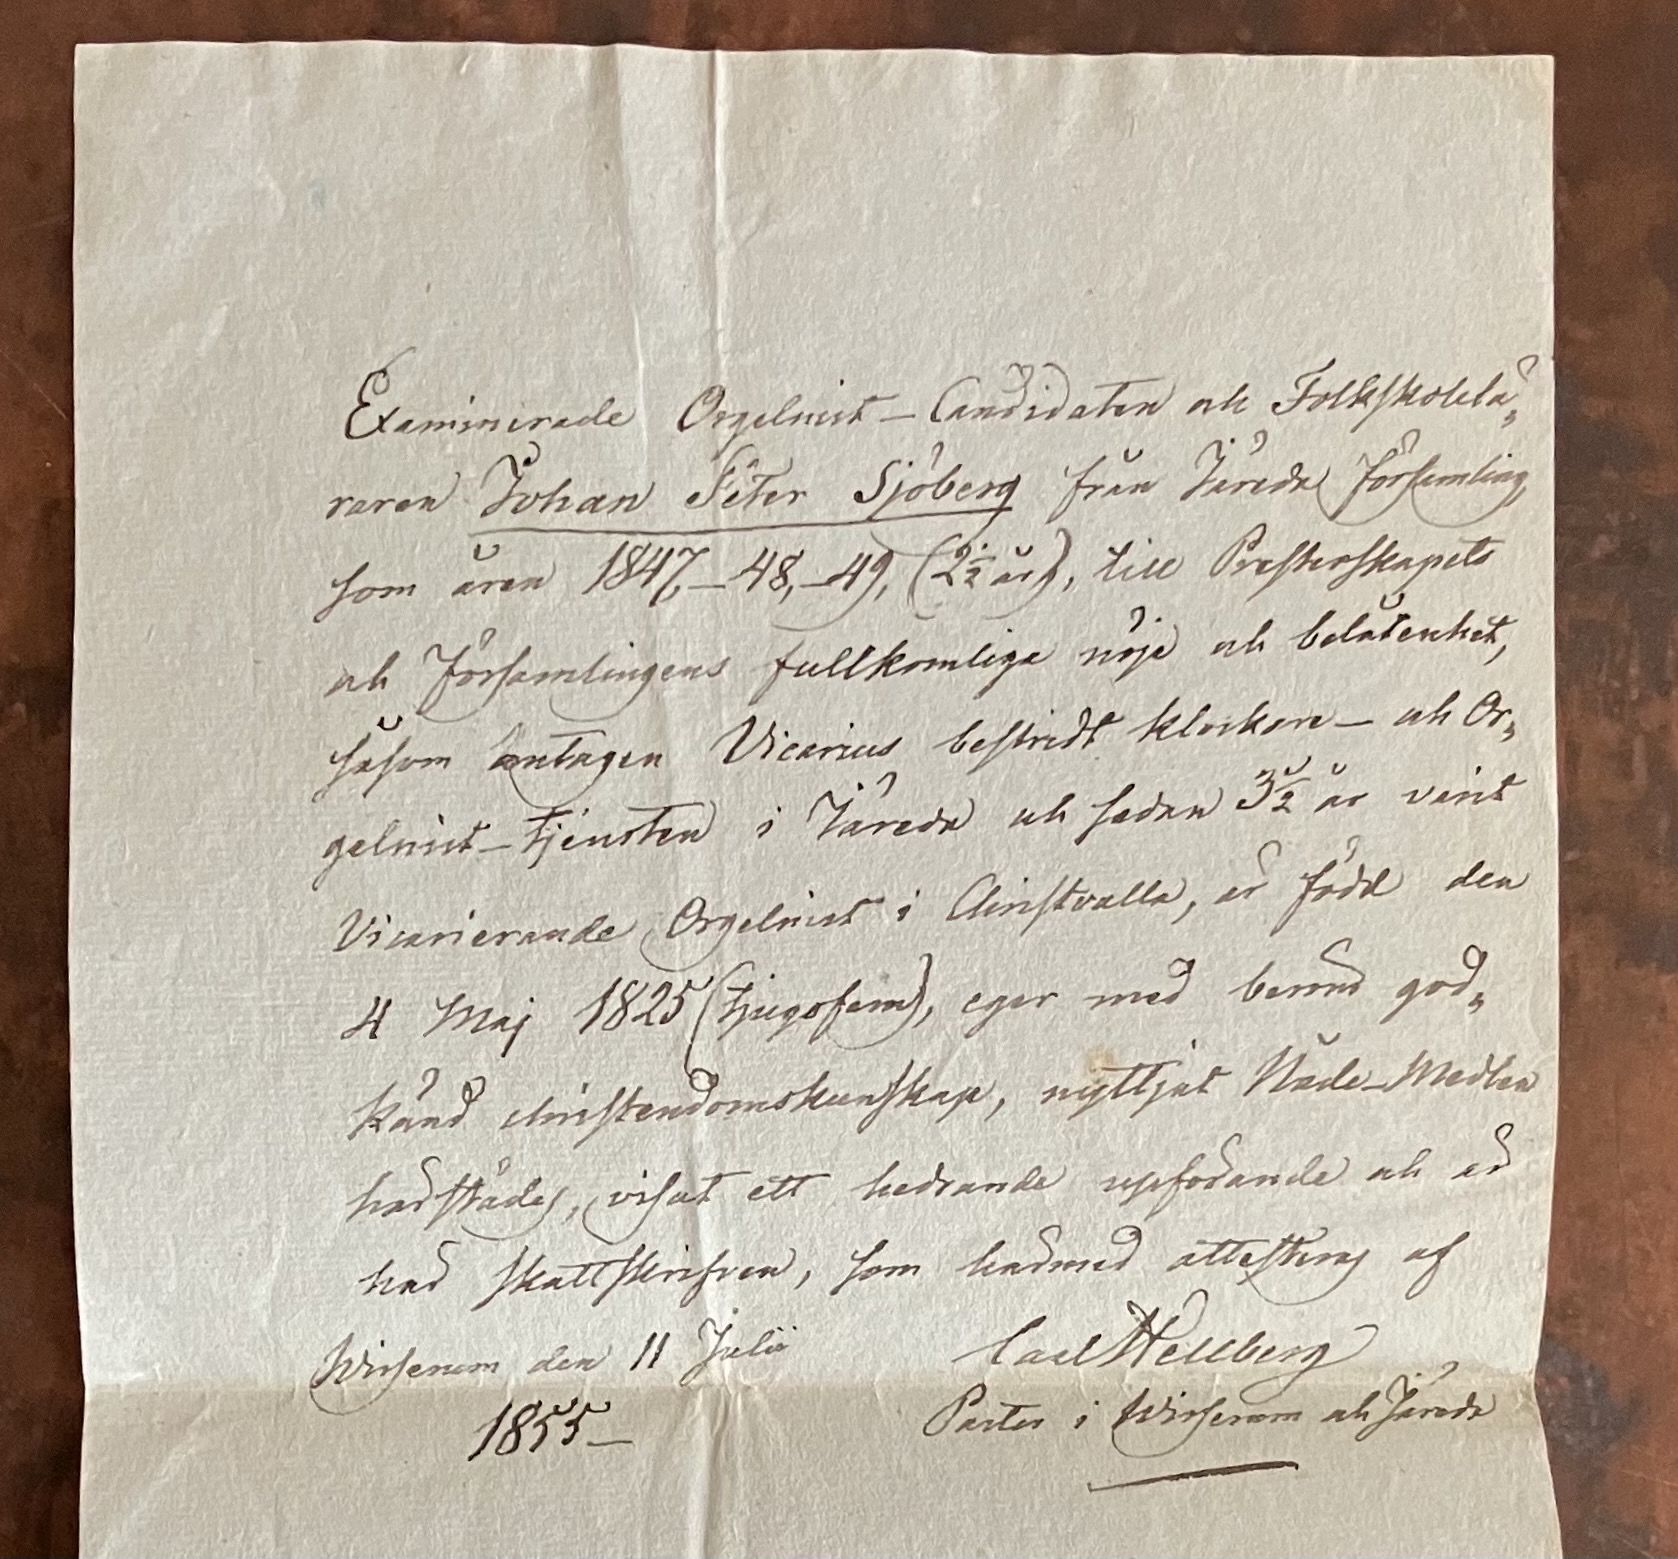 Examinerade Orgelnist-Candidaten och Folkskolelä-
raren Johan Peter Sjöberg från Järeda Församling,
som åren 1847,-48,-49, (2½ år), till Presterskapets
och Församlingens fullkomliga nöje och belåtenhet,
såsom antagen Vicarius bestridt klockare- och Or-
gelnist-tjensten i Järeda och sedan 3½ år varit
Vicarierande Orgelnist i Christvalla, är född den
4 Maj 1825 (tjugofem), eger med berömd god-
känd christendomskunskap, nyttjat Nåde-Medlen
härstädes, visat ett hedrande uppförande och är
här skattskrifven, som härmed attesteras af
Wirserum den 11 Julii Carl Hellberg
1855- Pastor i Wirserum och Järeda